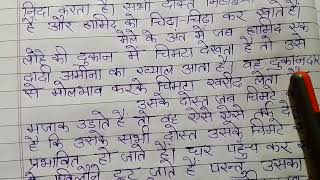 निंदा करता है। सभी दोस्त मिठाइयाँ
है और हामिद को चिढ़ा-चिढ़ा कर खाते हैं
मेले के अंत में जब हामिद एक
लोहे की दुकान में चिमटा देखता है तो उसे
दादी अमीना का ख्याल आता है वह दुकानदार
से मोलभाव करके चिमटा खरीद लेता
उसके दोस्त जब चिमटे
मजाक उड़ाते हैं तो वह ऐसे ऐसे तर्क दे
है कि उसके सभी दोस्त उसके चिमटे
प्रभावित हो जाते हैं। घर पहुँच कर स
के खिलौने टूट जाते हैं परन्तु उसका